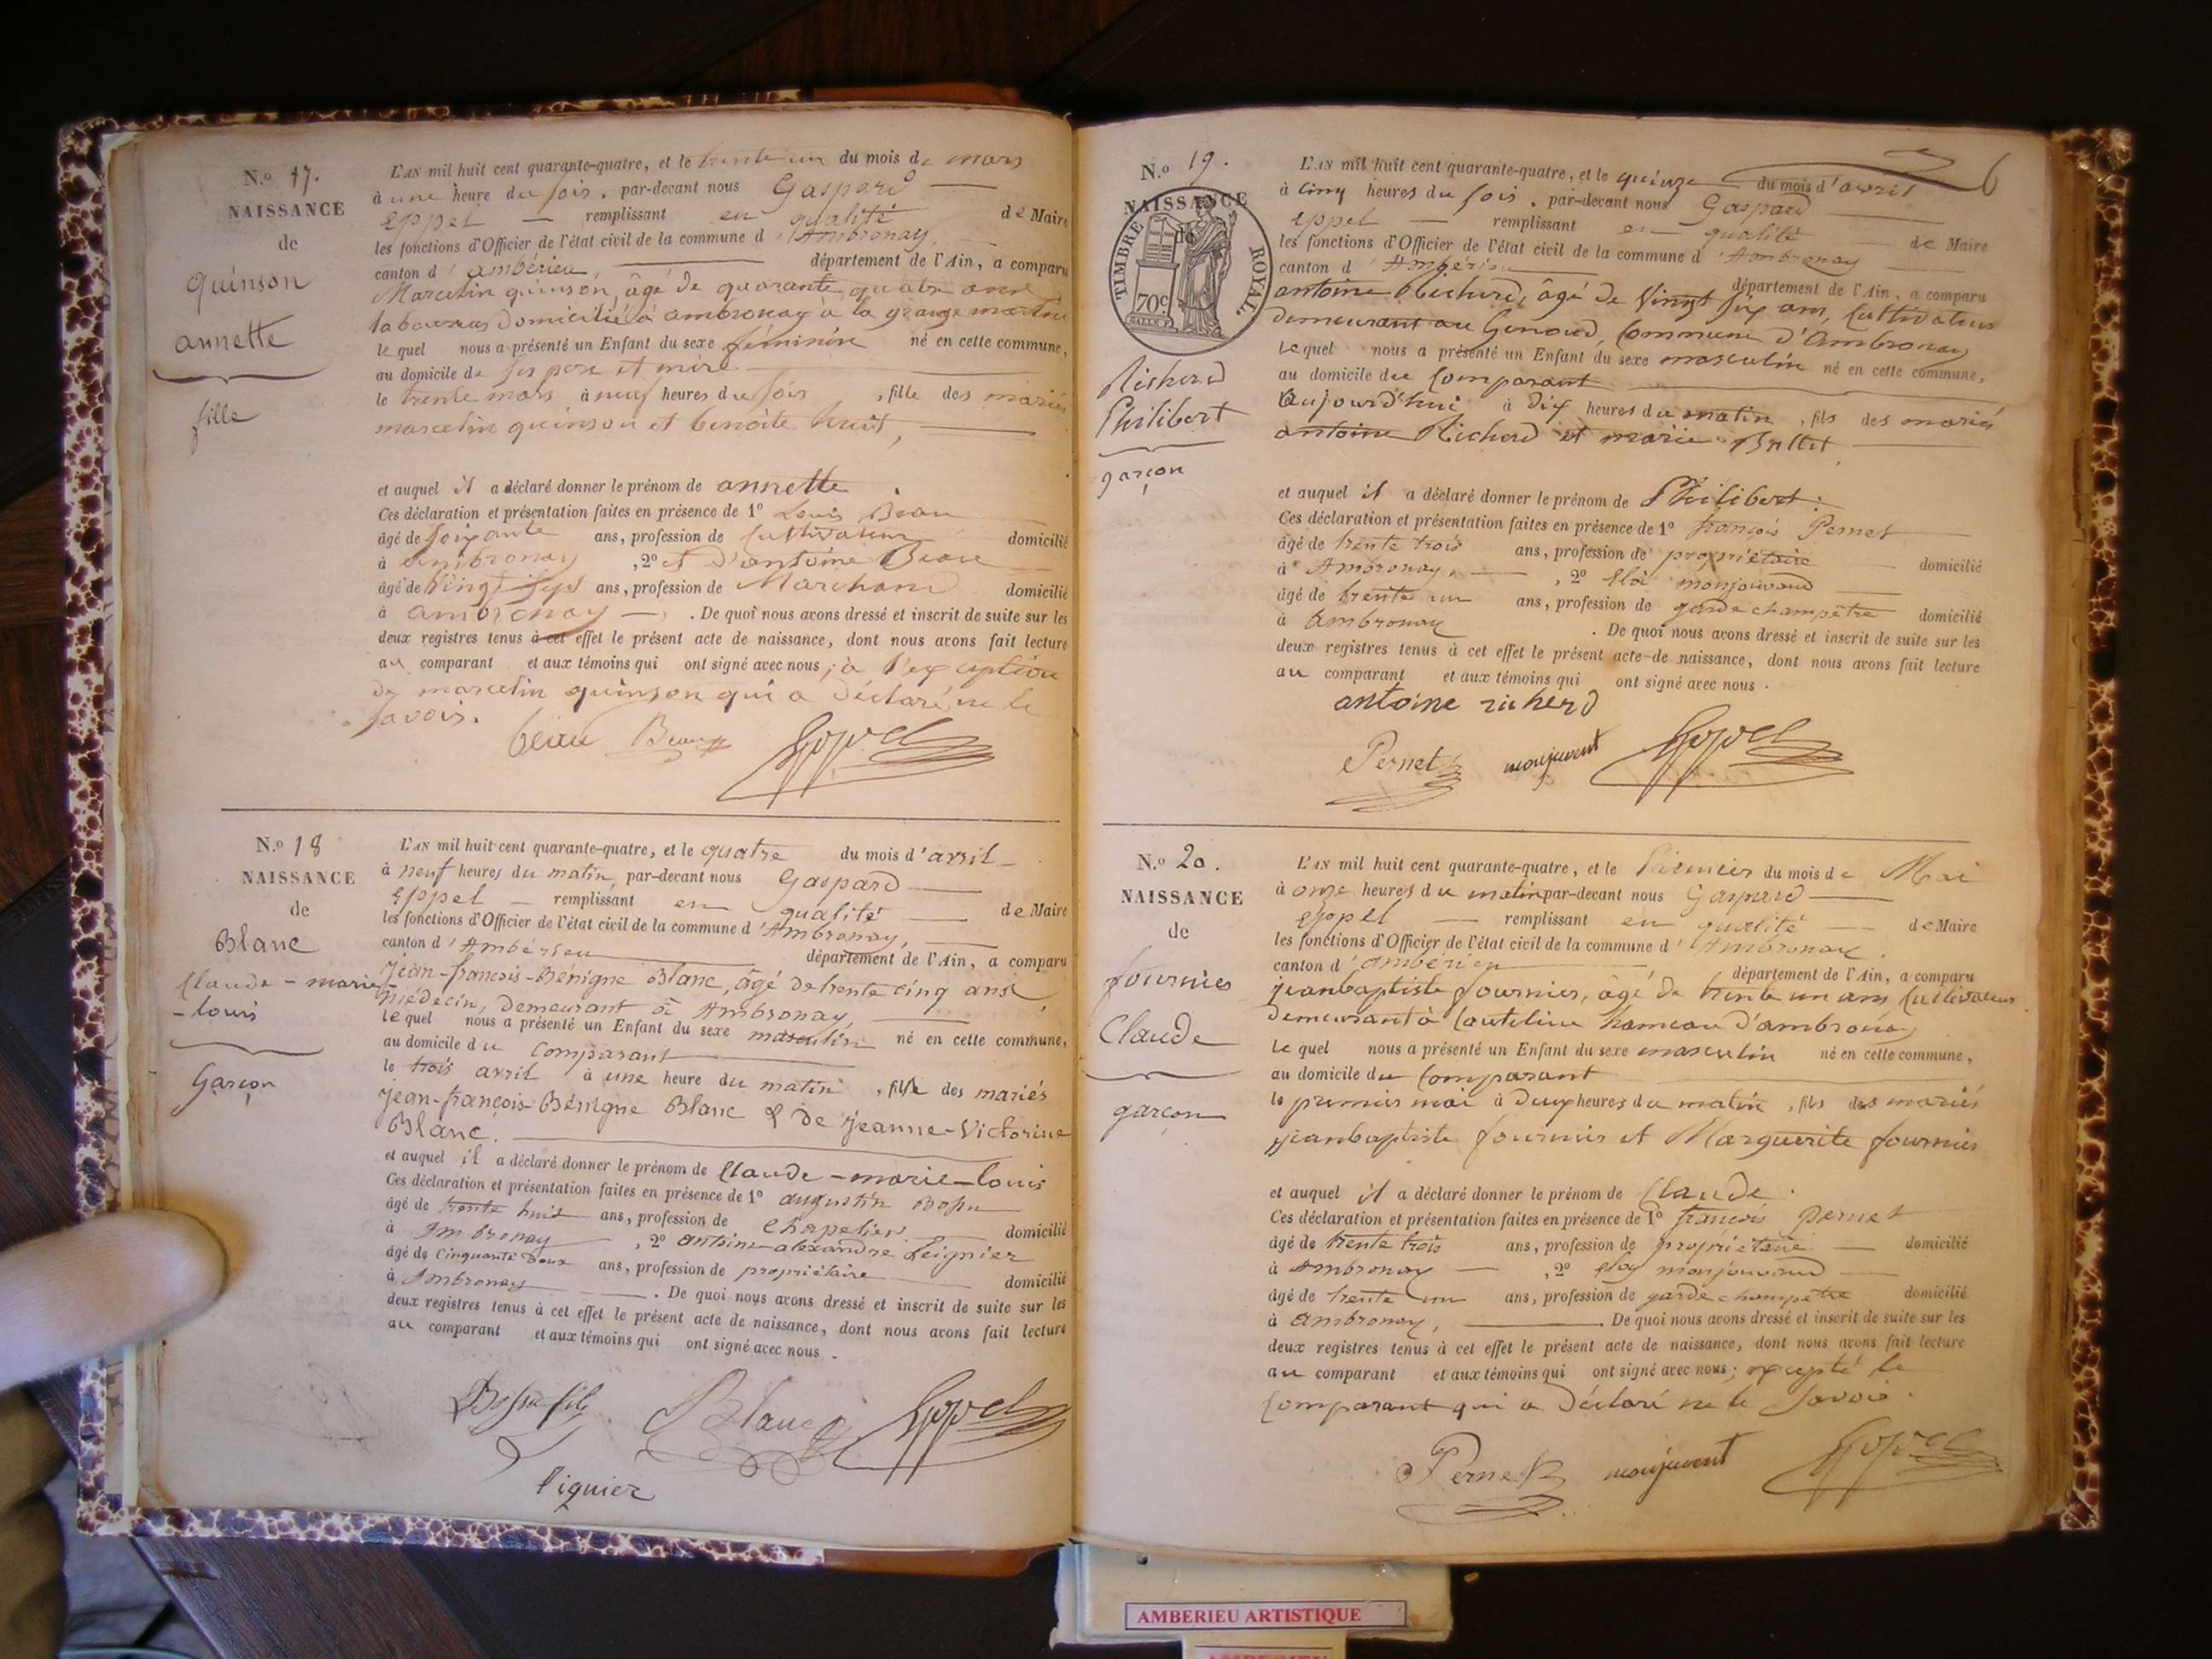 N.o 17.
NAISSANCE
de
quinson
annette
fille
L'AN mil huit cent quarante-quatre, et le trente un du mois de mars
à une heure du soir. par-devant nous Gaspard
Eppel remplissant en qualité de Maire
les fonctions d'Officier de l'état civil de la commune d'Ambronay,
canton d'ambérieu, département de l'Ain, a comparu
Marcelin quinson, âgé de quarante quatre ans
laboureur domicilié à ambronay à la grange
lequel nous a présenté un Enfant du sexe féminin né en cette commune,
au domicile de ses pere et mere
le trente mars à neuf heures du soir, fille des mariés
marcelin quinson et benoite huit,
et auquel il a déclaré donner le prénom de annette.
Ces déclaration et présentation faites en présence de 1o Louis Beau
âgé de soixante ans, profession de cultivateur domicilié
à ambronay, 2o et d'antoine Beau
âgé de vingt sept ans, profession de Marchand domicilié
à ambronay. De quoi nous avons dressé et inscrit de suite sur les
deux registres tenus à cet effet le présent acte de naissance, dont nous avons fait lecture
au comparant et aux témoins qui ont signé avec nous, à l'exception
de marcelin quinson qui a déclaré ne le
savoir.
beau Beau Eppel
N.o 18
NAISSANCE
de
Blanc
Claude-marie
-louis
Garçon
L'AN mil huit cent quarante-quatre, et le quatre du mois d'avril
à neuf heures du matin, par-devant nous Gaspard
Eppel remplissant en qualité de Maire
les fonctions d'Officier de l'état civil de la commune d'Ambronay,
canton d'Ambérieu département de l'Ain, a comparu
jean-françois-Bénigne Blanc, âgé de trente cinq ans
médecin, demeurant à Ambronay
lequel nous a présenté un Enfant du sexe masculin né en cette commune,
au domicile du comparant
le trois avril à une heure du matin, fils des mariés
jean-françois-Bénigne Blanc & de jeanne-Victorine
Blanc.
et auquel il a déclaré donner le prénom de Claude-marie-louis
Ces déclaration et présentation faites en présence de 1o augustin
âgé de trente huit ans, profession de Chapelier domicilié
à Ambronay, 2o antoine alexandre Leignier
âgé de Cinquante deux ans, profession de propriétaire domicilié
à Ambronay. De quoi nous avons dressé et inscrit de suite sur les
deux registres tenus à cet effet le présent acte de naissance, dont nous avons fait lecture
au comparant et aux témoins qui ont signé avec nous.
Blanc Eppel
liguier
6
N.o 19.
NAISSANCE
de
TIMBRE ROYAL.
70c.
Richerd
Philibert
garçon
L'AN mil huit cent quarante-quatre, et le quinze du mois d'avril
à cinq heures du soir. par-devant nous Gaspard
Eppel remplissant en qualité de Maire
les fonctions d'Officier de l'état civil de la commune d'Ambronay
canton d'Ambérieu département de l'Ain, a comparu
antoine Richerd, âgé de vingt six ans, cultivateur
demeurant au Genoud, Commune d'Ambronay
lequel nous a présenté un Enfant du sexe masculin né en cette commune,
au domicile du comparant
aujourd'hui à dix heures du matin, fils des mariés
antoine Richerd et marie
et auquel il a déclaré donner le prénom de Philibert.
Ces déclaration et présentation faites en présence de 1o françois Pernet
âgé de trente trois ans, profession de propriétaire domicilié
à Ambronay, 2o Eloi monjouvend
âgé de trente un ans, profession de garde champêtre domicilié
à ambronay. De quoi nous avons dressé et inscrit de suite sur les
deux registres tenus à cet effet le présent acte de naissance, dont nous avons fait lecture
au comparant et aux témoins qui ont signé avec nous.
antoine richerd
Pernet monjuvent Eppel
N.o 20.
NAISSANCE
de
fournier
Claude
garçon
L'AN mil huit cent quarante-quatre, et le premier du mois de Mai
à onze heures du matin par-devant nous Gaspard
Eppel remplissant en qualité de Maire
les fonctions d'Officier de l'état civil de la commune d'Ambronay
canton d'ambérieu département de l'Ain, a comparu
jeanbaptiste fournier, âgé de trente un ans cultivateur
demeurant à Couteline hameau d'ambronay
lequel nous a présenté un Enfant du sexe masculin né en cette commune,
au domicile du comparant
le premier mai à deux heures du matin, fils des mariés
jeanbaptiste fournier et Marguerite fournier
et auquel il a déclaré donner le prénom de Claude.
Ces déclaration et présentation faites en présence de 1o françois Pernet
âgé de trente trois ans, profession de propriétaire domicilié
à Ambronay, 2o eloy monjouvend
âgé de trente un ans, profession de garde champêtre domicilié
à ambronay, De quoi nous avons dressé et inscrit de suite sur les
deux registres tenus à cet effet le présent acte de naissance, dont nous avons fait lecture
au comparant et aux témoins qui ont signé avec nous; excepté le
comparant qui a déclaré ne le savoir.
Pernet monjuvent Eppel
AMBERIEU ARTISTIQUE